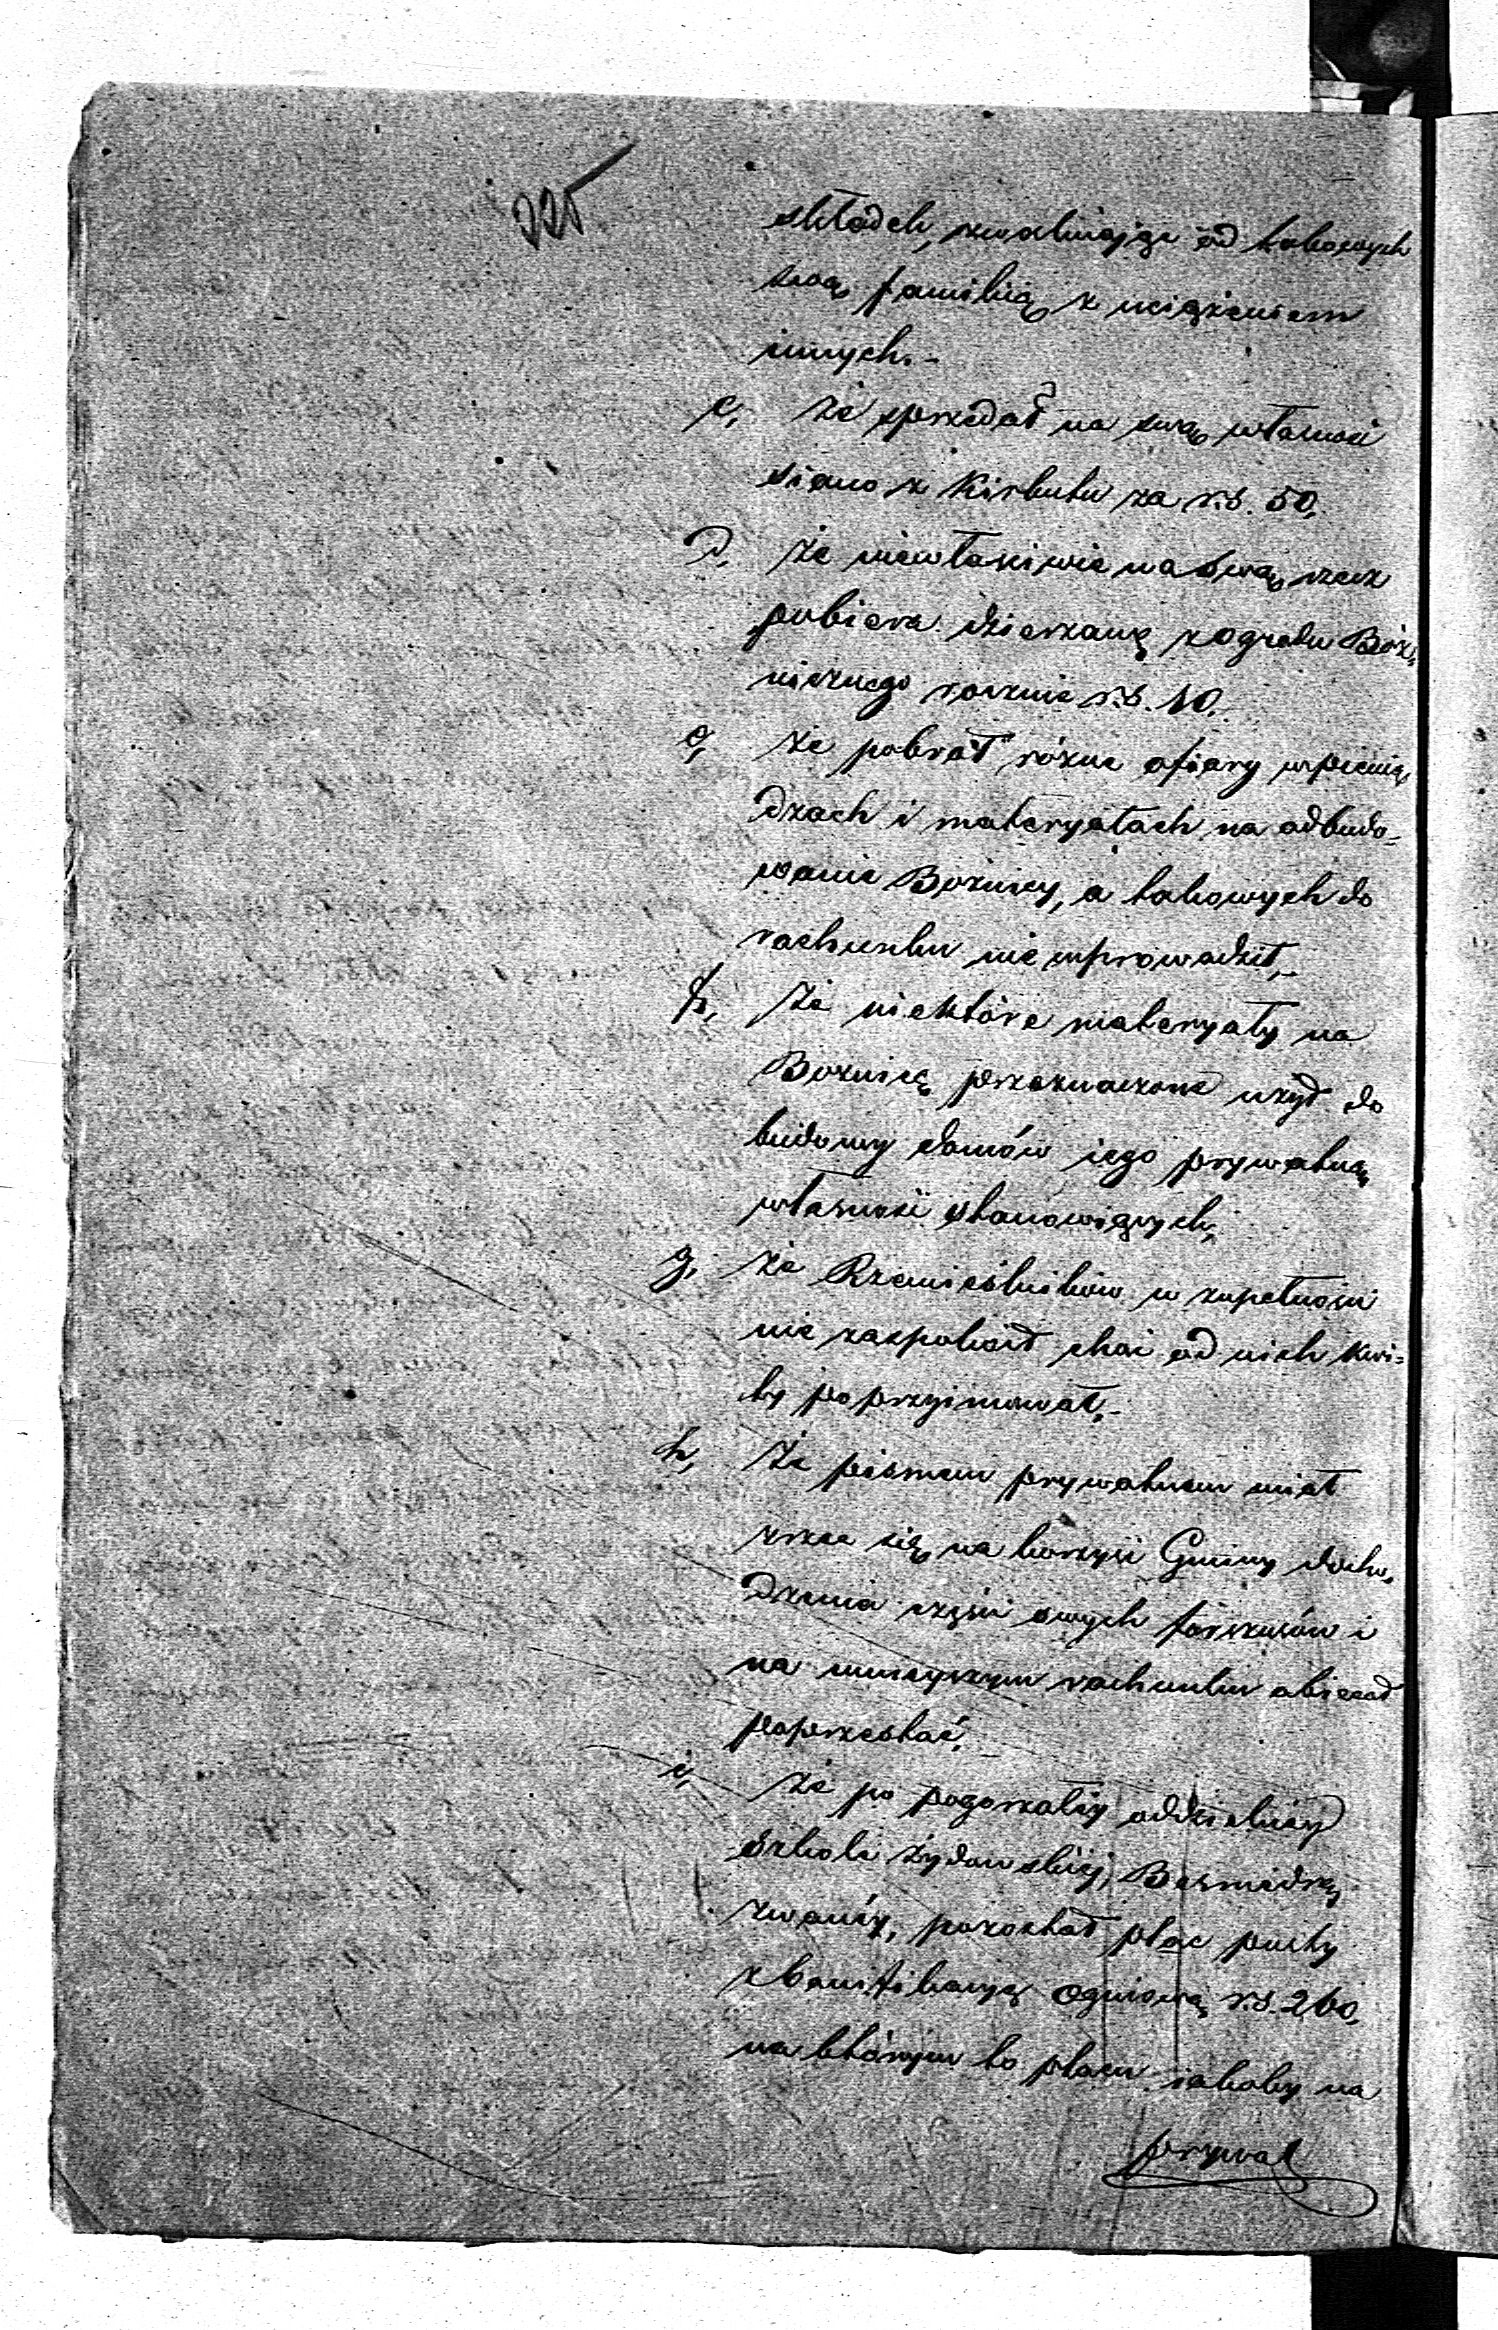 225
składek, zwalniając od takowych
swoą familią z uciążeniem
innych.-
c, że sprzedał na swą własność
siano z Kirkutu za r.s. 50,
d, że niewłaściwie na swą rzecz
pobiera dzierzawę z ogrodu Boż,
nicznego rocznie r.s. 10,
e, że pobrał różne ofiary w pienią,
dzach i materyałach na odbudo-
wanie Bożnicy, a takowych do
rachunku nie wprowadził,-
f, że niektóre materyały na
Bożnicę przeznaczone użył do
budowy domów iego prywatną
własność stanowiących,
g, że Rzemieślników w zupełności
nie zaspokoił choć od nich kwi-
ty poprzyimował,-
h, że pismem prywatnem miał
zrzec się na korzyść Gminy docho,
dzenia części swych forszusów i
na mnieyszym rachunku obiecał
poprzestać,
i, że po pogorzałey oddzielnéy
szkole żydowskiéj, Besmedrą
zwanéy, pozostał plac pusty
z bonifikacyą ogniową r.s. 260,
na którym to placu iakoby na
prywat